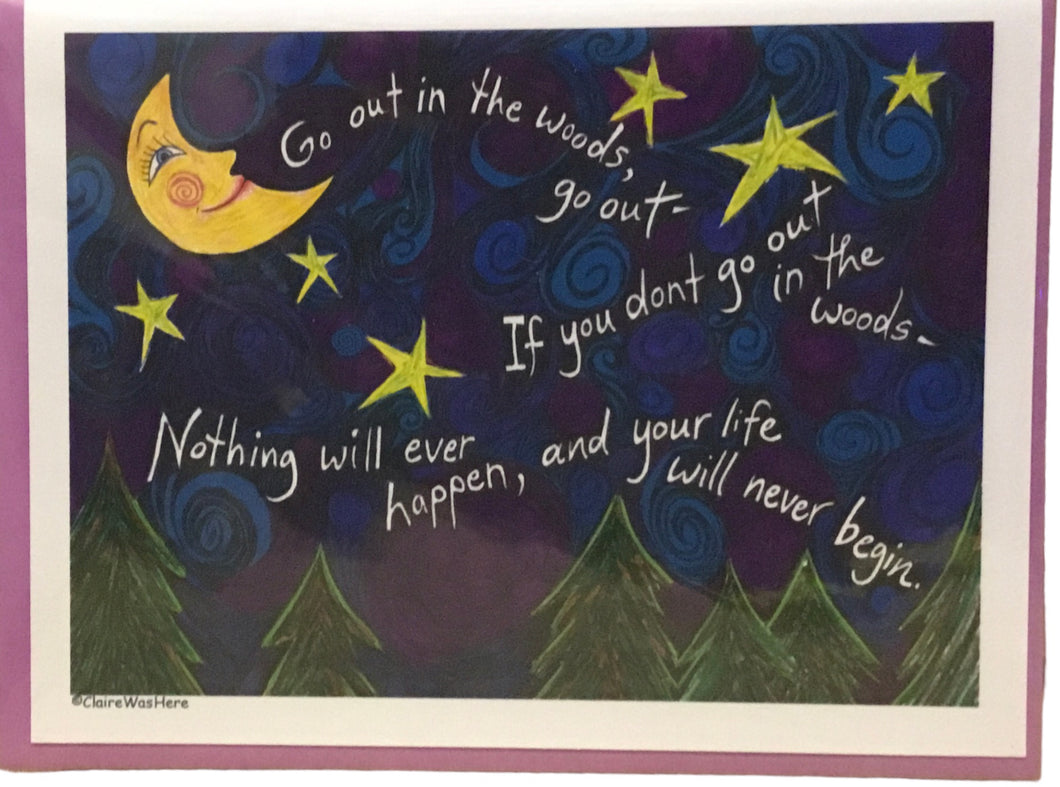 Go out in the woods,
go out-
If you dont go out
in the
woods-
Nothing will ever
happen,
and your life
will never
begin.
©ClaireWasHere